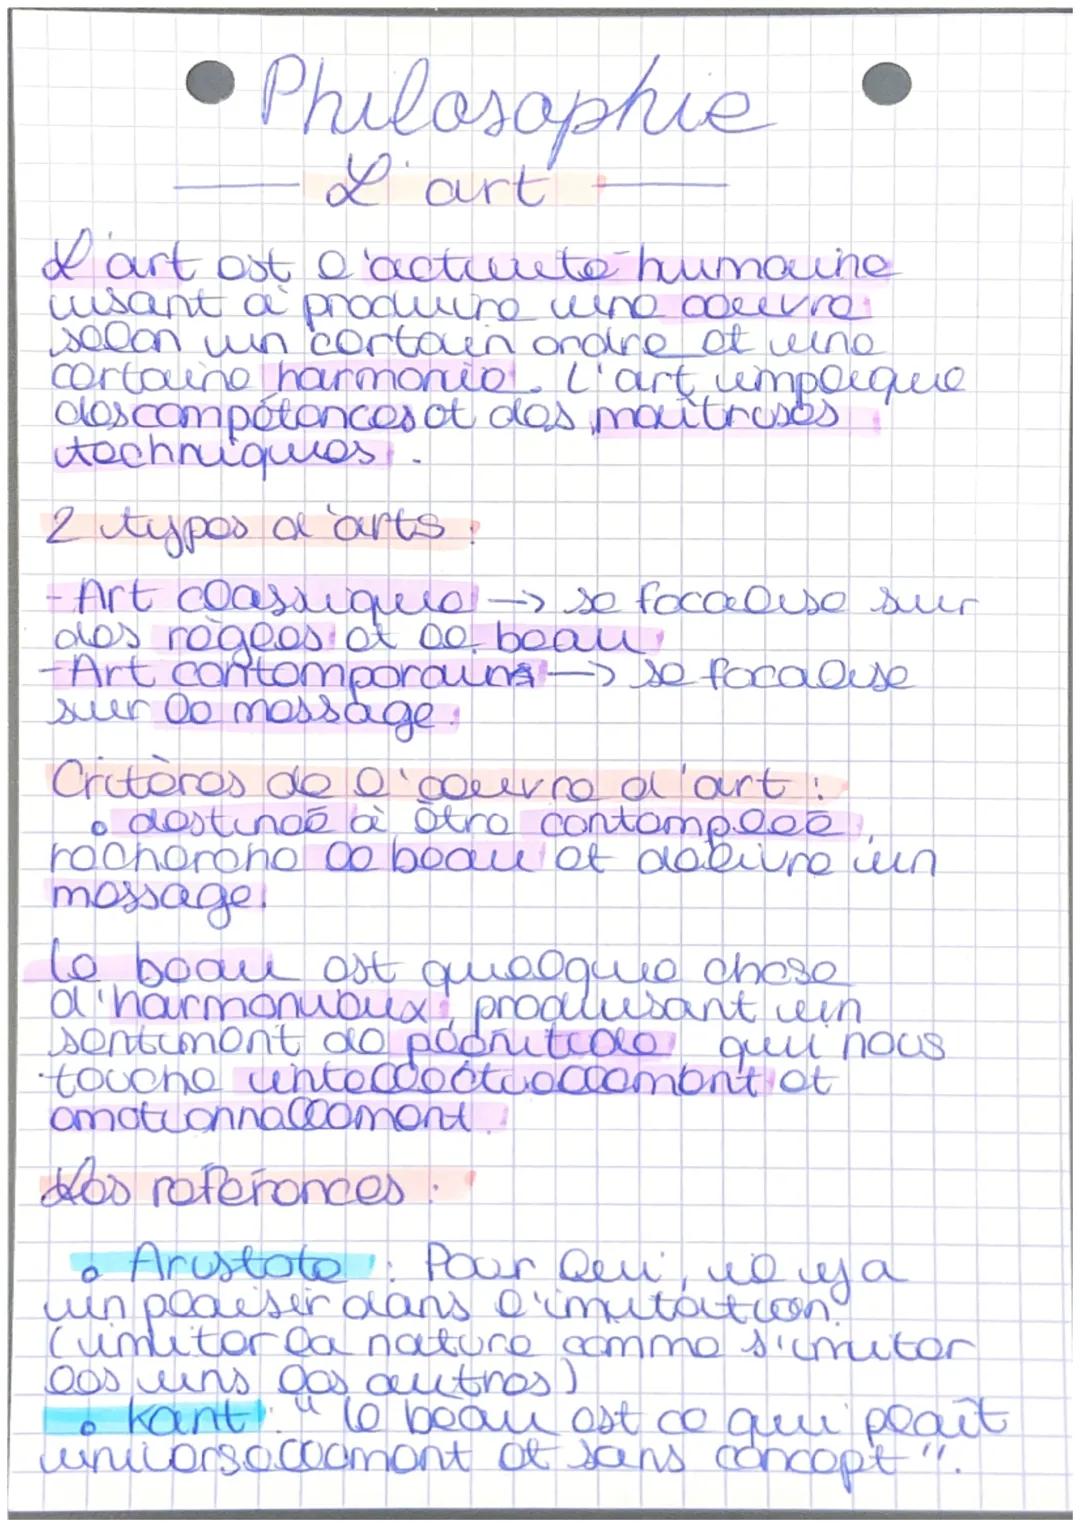 Philosophie
L'art
L'art est l'activité humaine
visant à produire une oeuvre
selon un certain ordre et une
certaine harmonie. L'art implique
des compétences et des maîtrises
techniques.
2 types d'arts :
- Art classique → se focalise sur
des règles et le beau
- Art contemporains → se focalise
sur le message.
Critères de l'oeuvre d'art :
• destinée à être contemplée,
recherche le beau et délivre un
message.
Le beau est quelque chose
d'harmonieux, produisant un
sentiment de plénitude qui nous
touche intellectuellement et
emotionnellement.
Les references :
• Aristote : Pour lui, il y a
un plaisir dans l'imitation.
(imiter la nature comme s'imiter
les uns les autres)
• Kant : "le beau est ce qui plaît
universellement et sans concept".